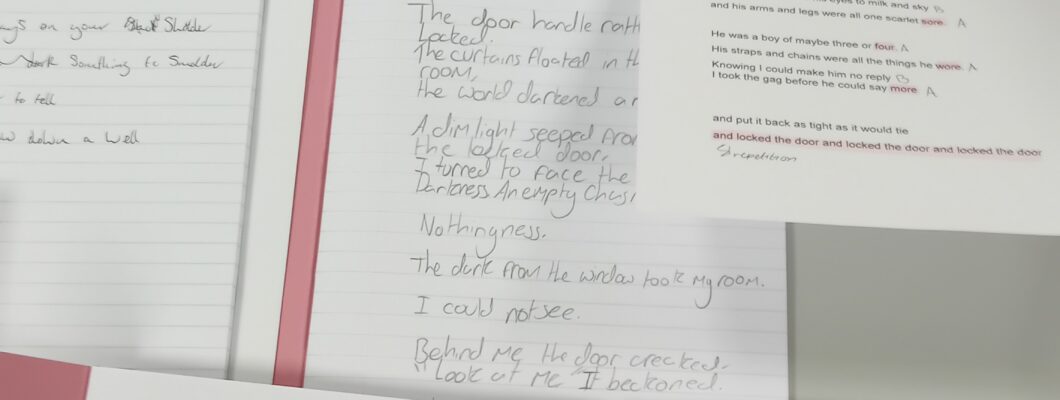 on your Shdder
Something to Smolder
to tell
down a well
The door handle
Locked.
The curtains floated in
room,
the world darkened
A dim light seeped
the door,
I turned to face the
Darkness An empty
Nothingness.
The dark from the window took my room.
I could not see.
Behind me the door crecked.
"Look at me It beckoned.
to milk and sky B
and his arms and legs were all one scarlet sore. A
He was a boy of maybe three or four. A
His straps and chains were all the things he wore. A
Knowing I could make him no reply B
I took the gag before he could say more A
and put it back as tight as it would tie
and locked the door and locked the door and locked the door
repetition